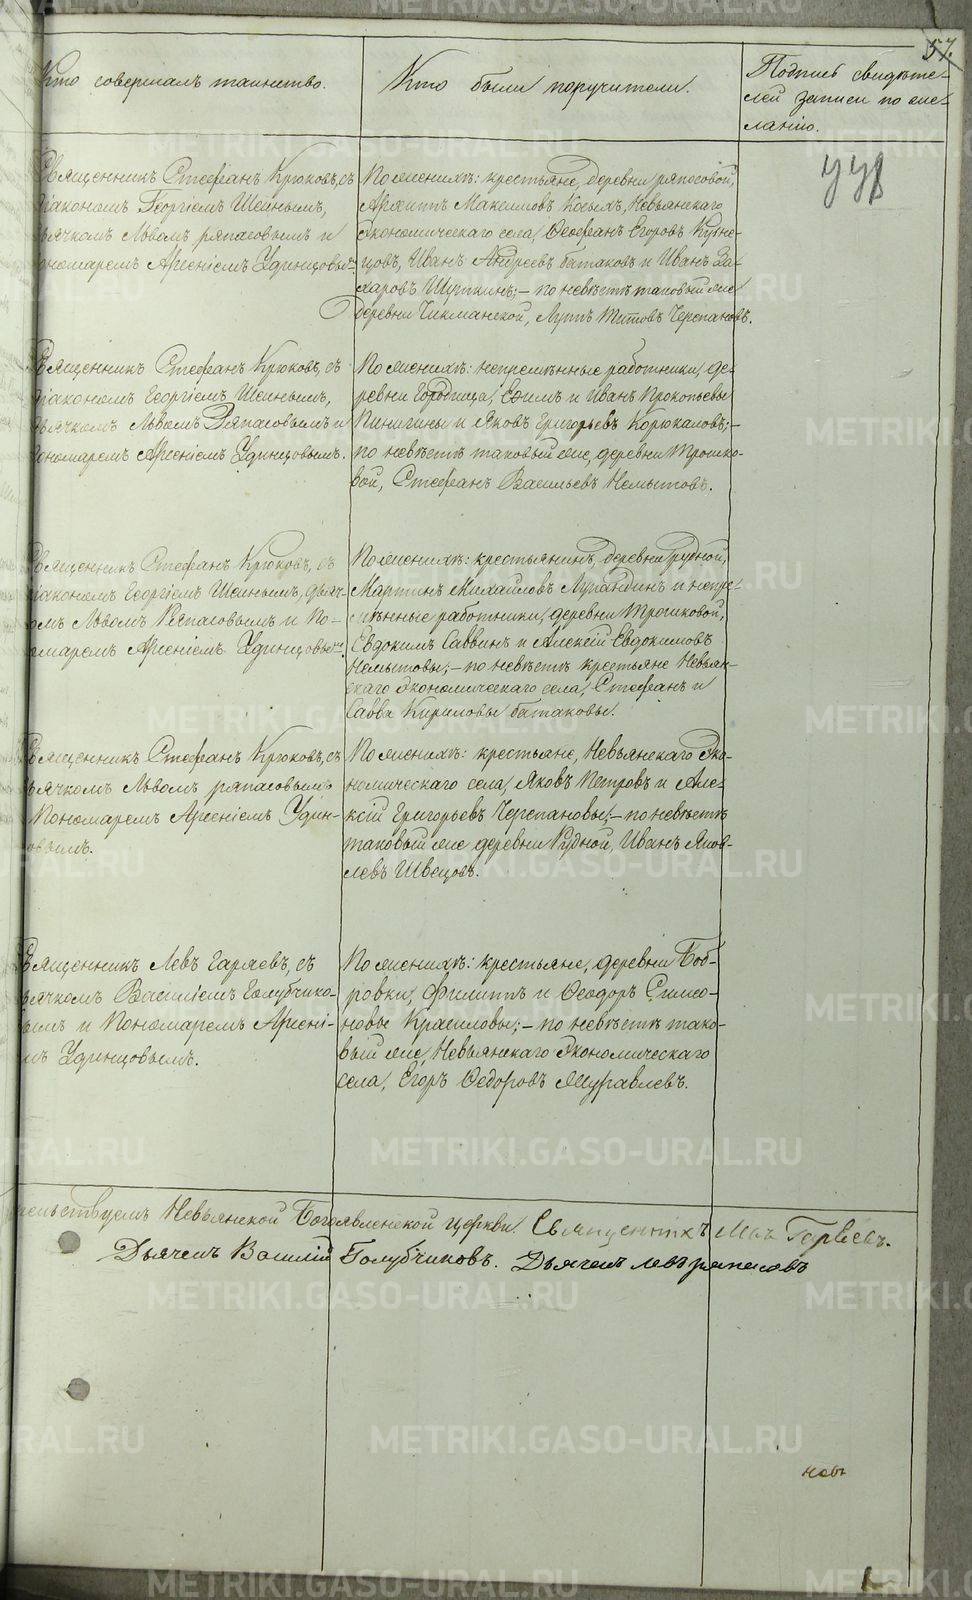 57.
Кто совершалъ таинство.
Кто были поручители.
Подпись свидѣте-
лей записи по же-
ланію.
Священникъ Стефанъ Крюковъ, съ
діакономъ Георгіемъ Шеинымъ,
дьячкомъ Львомъ Ряпасовымъ и
пономаремъ Арсеніемъ Удинцовымъ.
По женихѣ: крестьяне, деревни Ряпосовой,
Архиппъ Максимовъ Косыхъ, Невьянскаго
экономическаго села, Феофанъ Егоровъ Кузне-
цовъ, Иванъ Андреевъ Батаковъ и Иванъ За-
харовъ Шуткинъ; – по невѣстѣ таковый же
деревни Чикманской, Луппъ Титовъ Черепановъ.
Священникъ Стефанъ Крюковъ, съ
діакономъ Георгіемъ Шеинымъ,
дьячкомъ Львомъ Ряпасовымъ и
пономаремъ Арсеніемъ Удинцовымъ.
По женихѣ: непремѣнные работники, де-
ревни Городища, Ефимъ и Иванъ Прокопьевы
Пинигины и Яковъ Григорьевъ Корюкаловъ; –
по невѣстѣ таковый же, деревни Трошко-
вой, Стефанъ Васильевъ Немытовъ.
Священникъ Стефанъ Крюковъ, съ
діакономъ Георгіемъ Шеинымъ, дьяч-
комъ Львомъ Ряпасовымъ и по-
номаремъ Арсеніемъ Удинцовымъ.
По женихѣ: крестьянинъ, деревни Рудной,
Мартинъ Михайловъ Лупандинъ и непре-
мѣнные работники, деревни Трошковой,
Евдокимъ Саввинъ и Алексій Евдокимовъ
Немытовы; – по невѣстѣ крестьяне Невьян-
скаго экономическаго села, Стефанъ и
Савва Кириловы Батаковы.
Священникъ Стефанъ Крюковъ, съ
дьячкомъ Львомъ Ряпасовымъ
Пономаремъ Арсеніемъ Удин-
цовымъ.
По женихѣ: крестьяне, Невьянскаго эко-
номическаго села, Яковъ Петровъ и Але-
ксій Григорьевъ Черепановы; – по невѣстѣ
таковый же деревни Рудной, Иванъ Яков-
левъ Швецовъ.
Священникъ Левъ Гаряевъ, съ
дьячкомъ Василіемъ Голубчико-
вымъ и Пономаремъ Арсені-
емъ Удинцовымъ.
По женихѣ: крестьяне, деревни Боб-
ровки, Филиппъ и Феодоръ Симео-
новы Красиловы; – по невѣстѣ тако-
вый же, Невьянскаго экономическаго
села, Егоръ Федоровъ Журавлевъ.
Невьянской Богоявленской церкви Священникъ
Дьячекъ Василій Голубчиковъ. Дьячекъ Левъ Ряпасовъ
METRIKI.GASO-URAL.RU